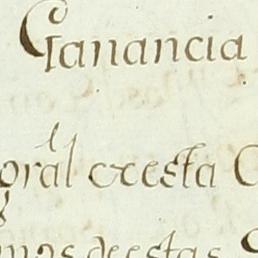 Ganancia
oral exesta
mos de estas